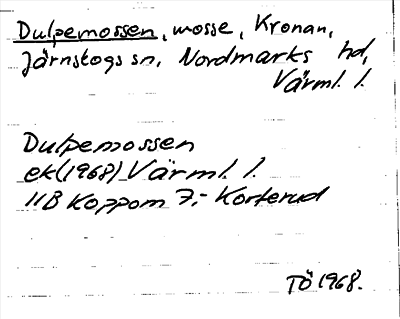 Dulpemossen, mosse, Kronan,
Järnskogs sn, Nordmarks hd,
Värml. l.
Dulpemossen
ek (1968) Värml. l.
11B Koppom 7,- Korterud
TÖ 1968.